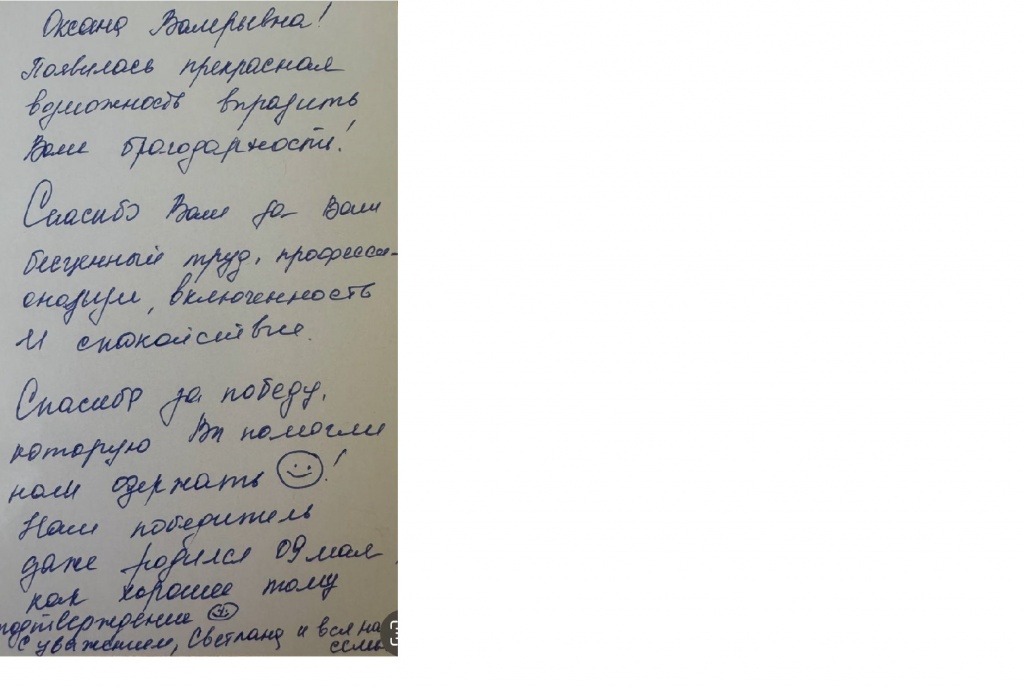 Оксана Валерьевна!
Появилась прекрасная
возможность выразить
Вам благодарность!
Спасибо Вам за Ваш
бесценный труд, професси-
онализм, включенность
и спокойствие.
Спасибо за победу,
которую Вы помогли
нам одержать !
Наш победитель
даже родился 09 мая,
как хорошее тому
подтверждение
С уважением, Светлана и вся на
семья